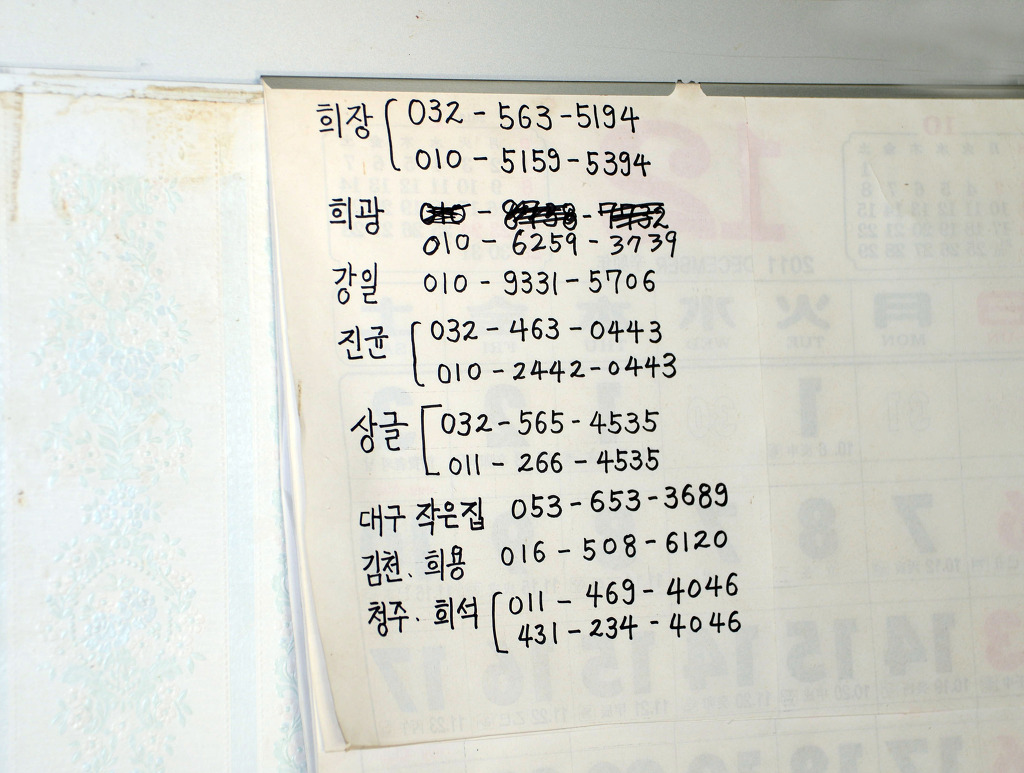 희장 032-563-5194
010-5159-5394
희광
010-6259-3739
강일 010-9331-5706
진균 032-463-0443
010-2442-0443
상글 032-565-4535
011-266-4535
대구 작은집 053-653-3689
김천. 희용 016-508-6120
청주. 희석 011-469-4046
431-234-4046